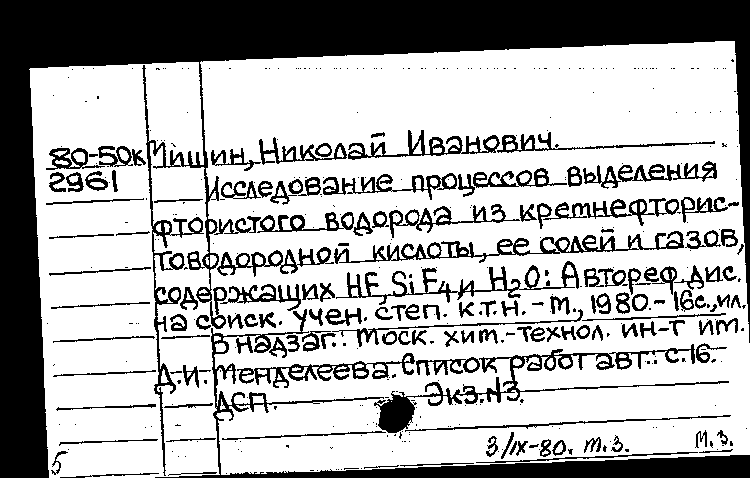 80-50к Мишин, Николай Иванович.
2961 Исследование процессов выделения
фтористого водорода из кремнефторис-
товодородной кислоты, ее солей и газов,
содержащих HF, SiF4 и H2O: Автореф. дис.
на соиск. учен. степ. к.т.н. - М., 1980. - 16с., ил.
В надзаг.: Моск. хим.-технол. ин-т им.
Д.И. Менделеева. Список работ авт.: с.16.
ДСП. Экз.N3.
3/IX-80. М.З. М.З.
5